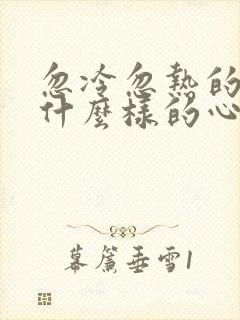 忽冷忽熱的
什麼樣的心
幕簾垂雪1